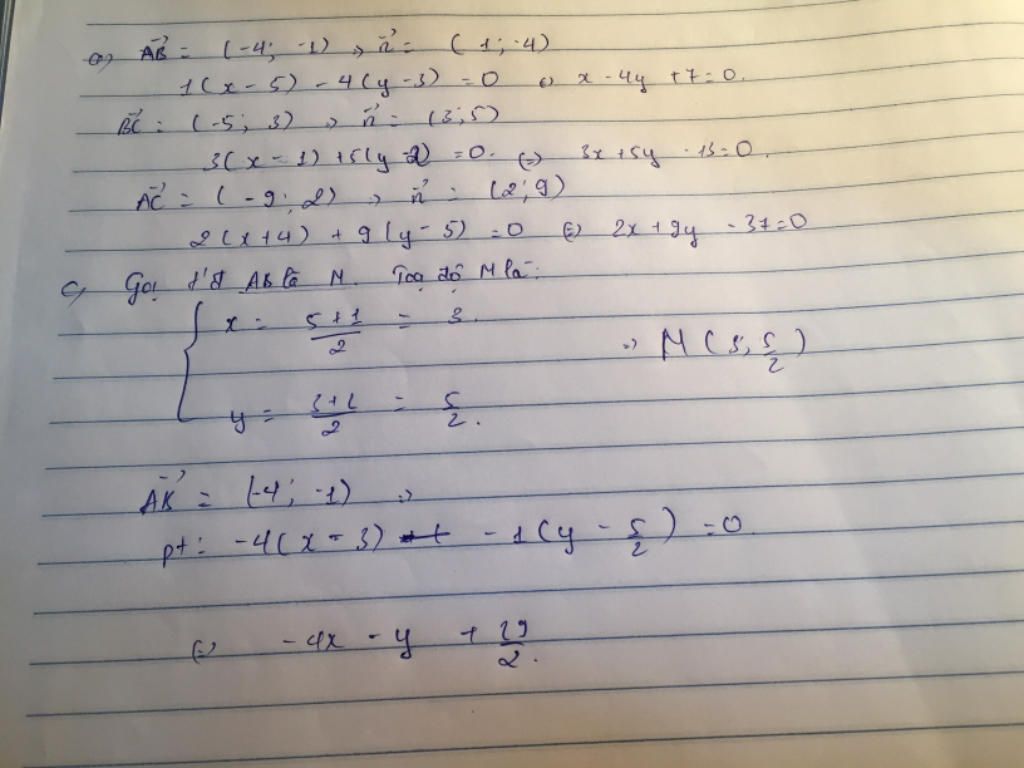 a) AB→ = (-4; -1) → n→ = (1; -4)
1(x - 5) - 4(y - 3) = 0 ⇔ x - 4y + 7 = 0.
BC→ = (-5; 3) → n→ = (3; 5)
3(x - 1) + 5(y - 2) = 0. ⇔ 3x + 5y - 13 = 0.
AC→ = (-9; 2) → n→ = (2; 9)
2(x + 4) + 9(y - 5) = 0 ⇔ 2x + 9y - 37 = 0
c) Gọi t'đ AB là M. Toạ độ M là:
x = (5+1)/2 = 3.
⇒ M(3; 5/2)
y = (3+2)/2 = 5/2.
AB→ = (-4; -1) ⇒
pt: -4(x - 3) - 1(y - 5/2) = 0.
⇔ -4x - y + 29/2.